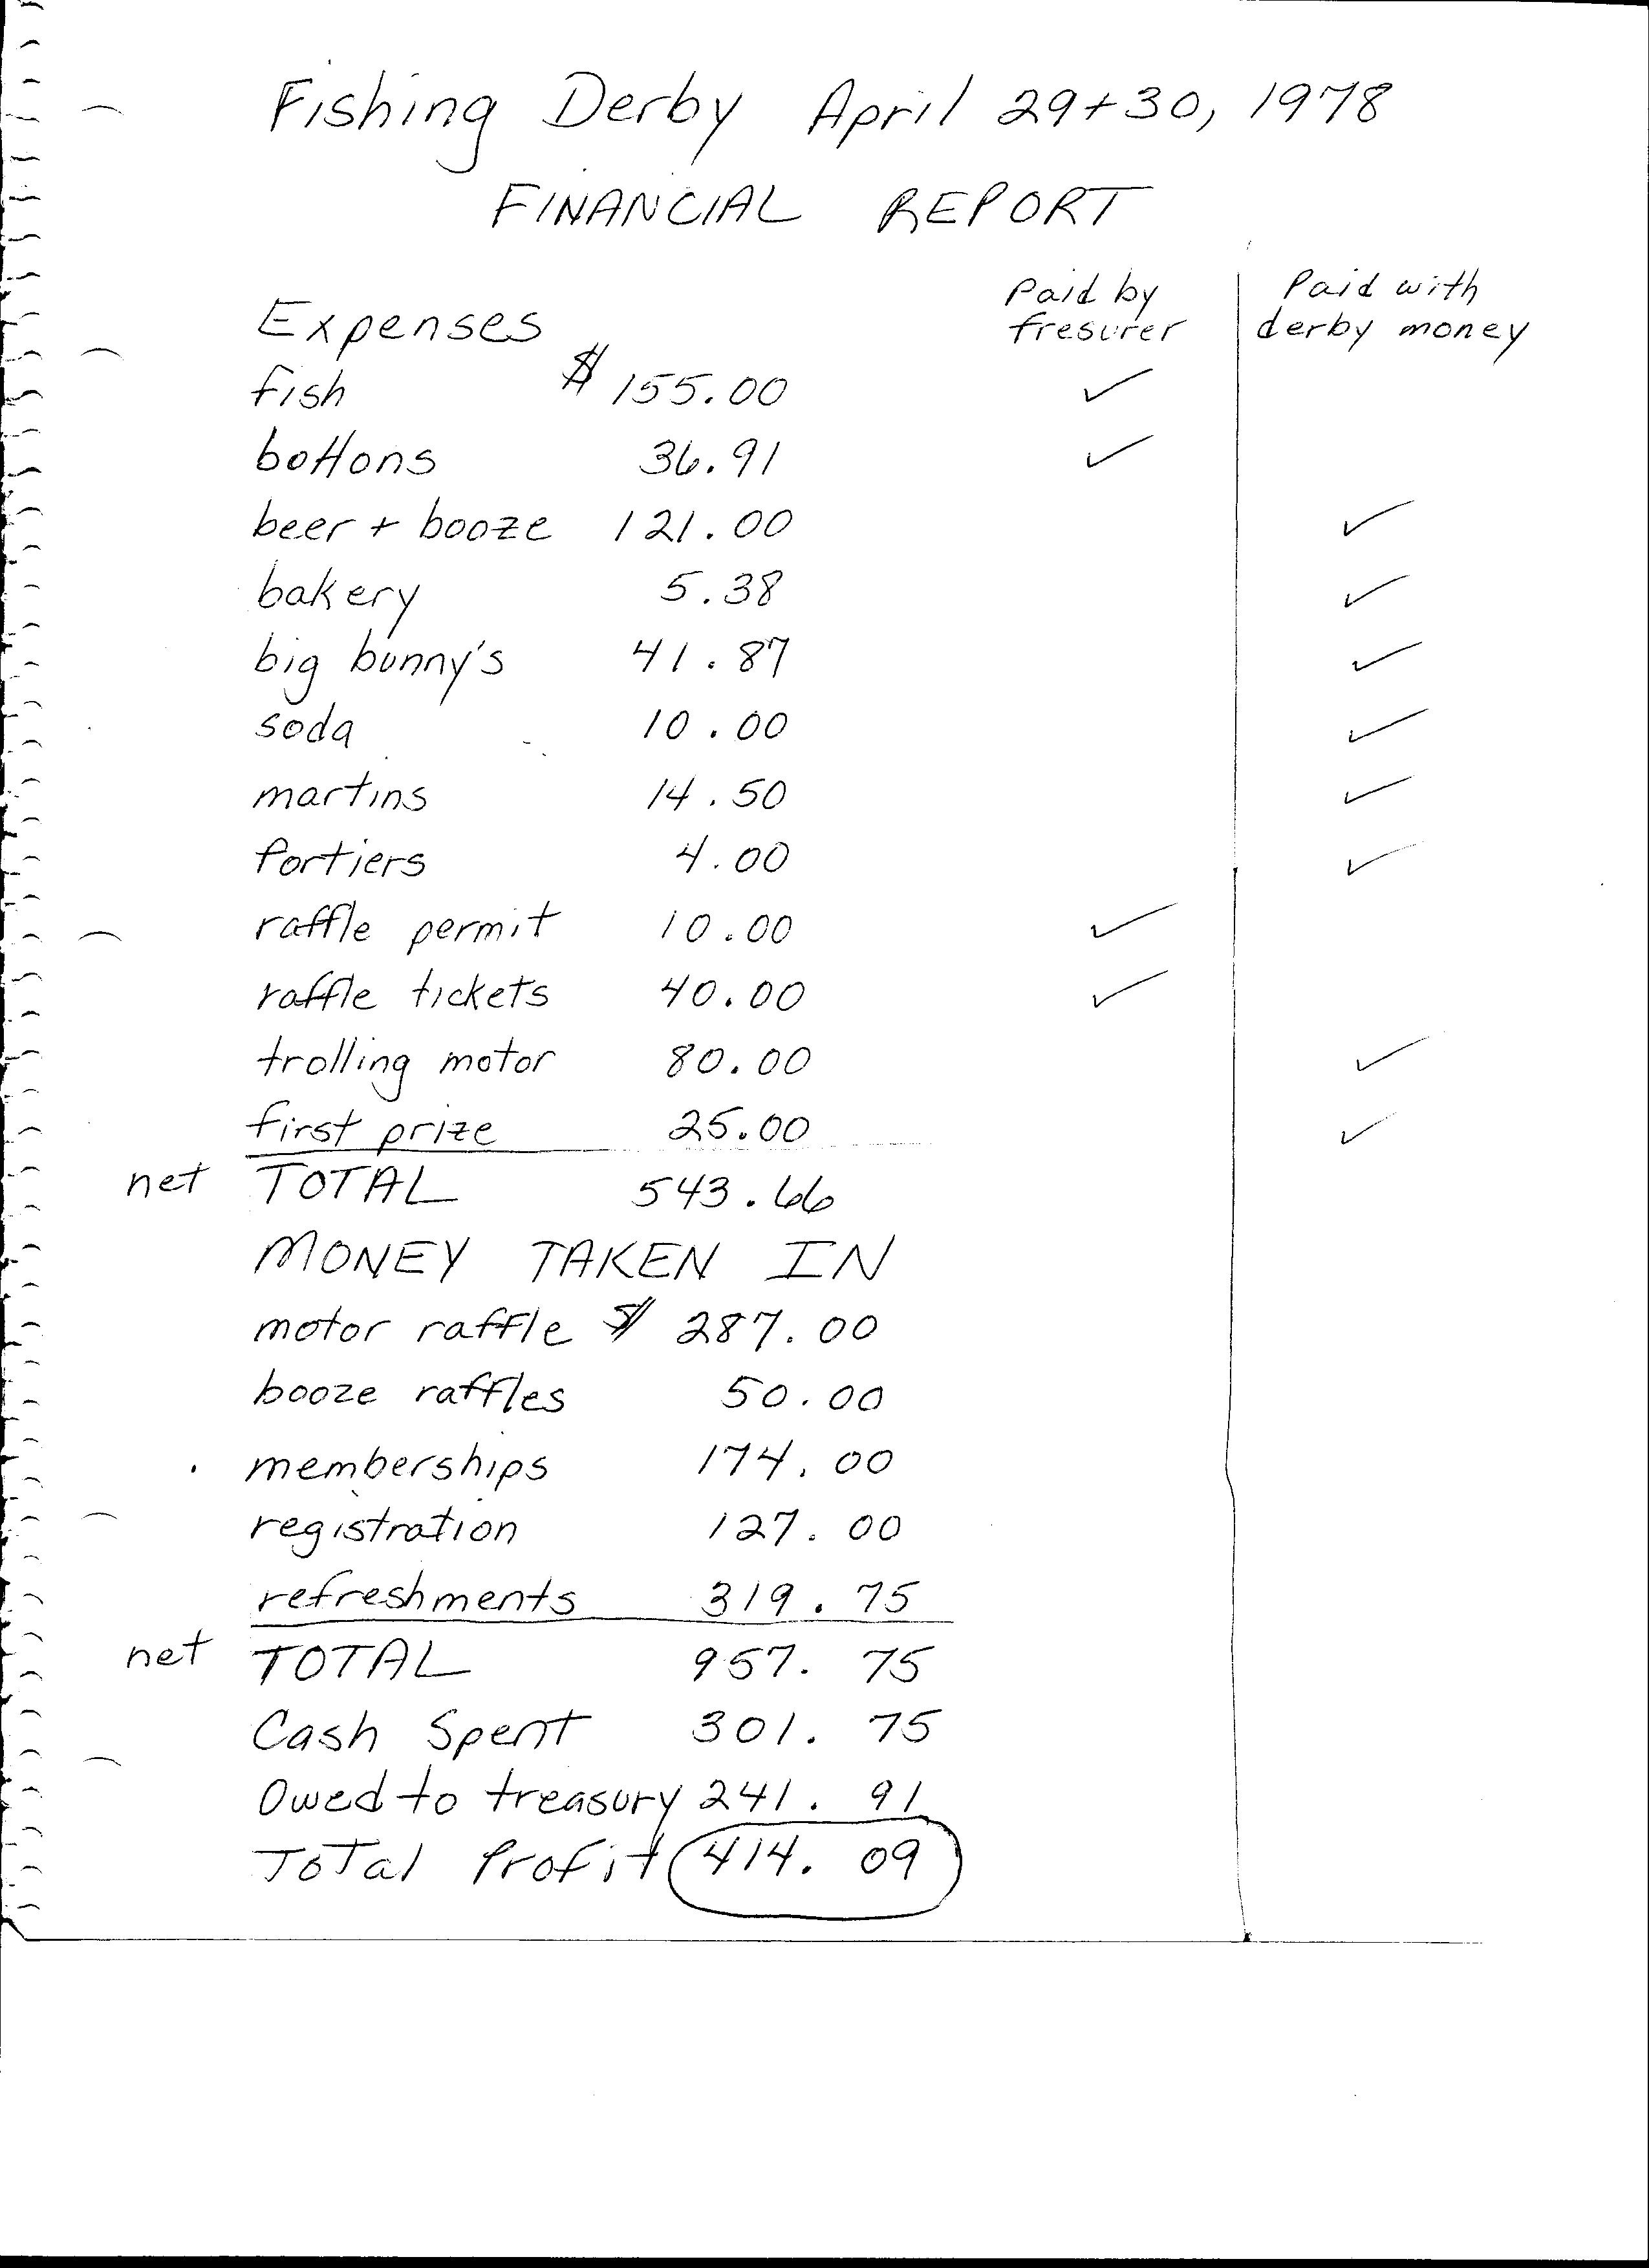 Fishing Derby April 29+30, 1978
FINANCIAL REPORT
Expenses Paid by fresurer Paid with derby money
fish $ 155.00 ✓
bottons 36.91 ✓
beer + booze 121.00 ✓
bakery 5.38 ✓
big bunny's 41.87 ✓
soda 10.00 ✓
martins 14.50 ✓
fortiers 4.00 ✓
raffle permit 10.00 ✓
raffle tickets 40.00 ✓
trolling motor 80.00 ✓
first prize 25.00 ✓
net TOTAL 543.66
MONEY TAKEN IN
motor raffle $ 287.00
booze raffles 50.00
memberships 174.00
registration 127.00
refreshments 319.75
net TOTAL 957.75
Cash Spent 301.75
Owed to treasury 241.91
Total Profit 414.09